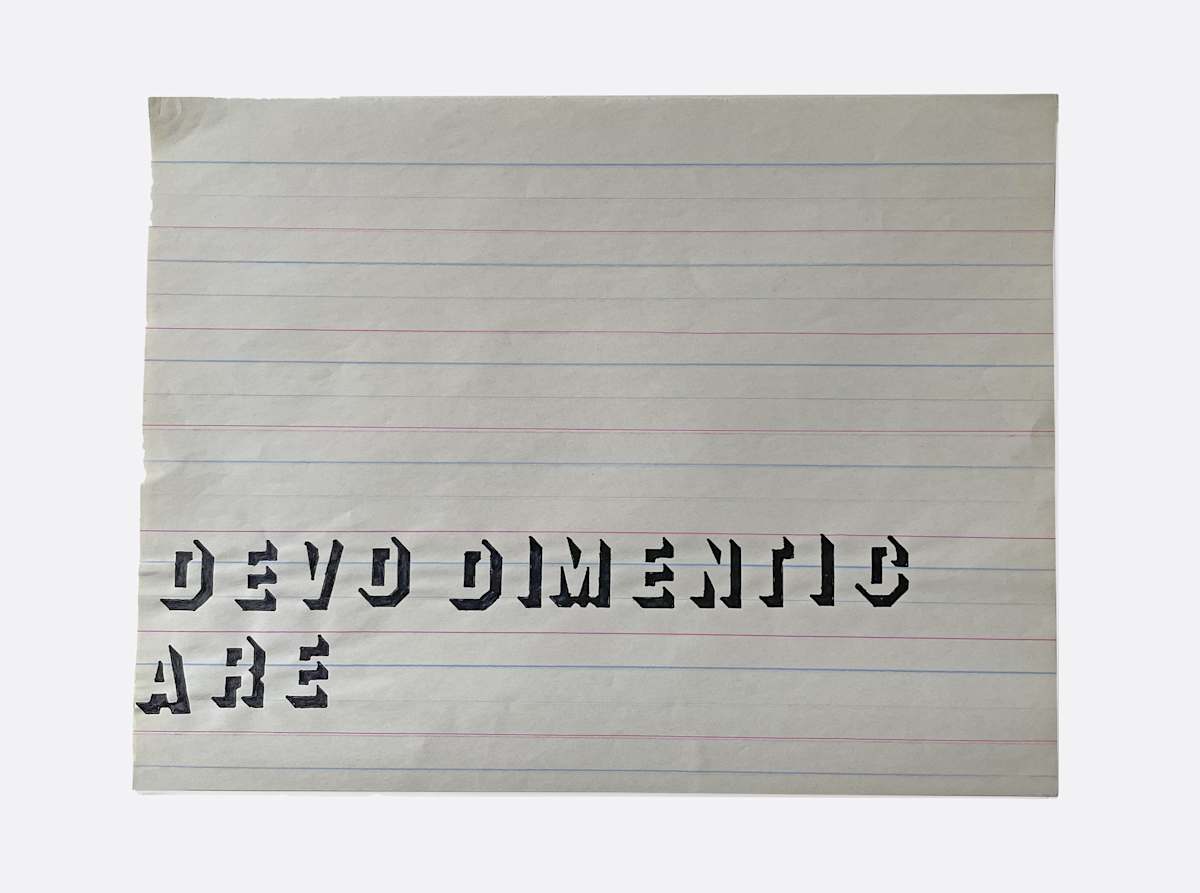 DEVO DIMENTIC
ARE